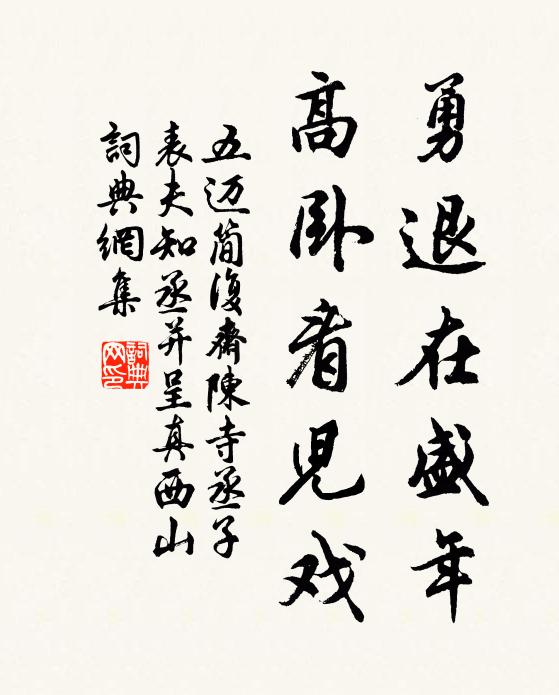 勇退在盛年
高卧看児戏
五迈简復齋陳寺丞子
表夫知丞并呈真西山
詞典網集
詞典
网印